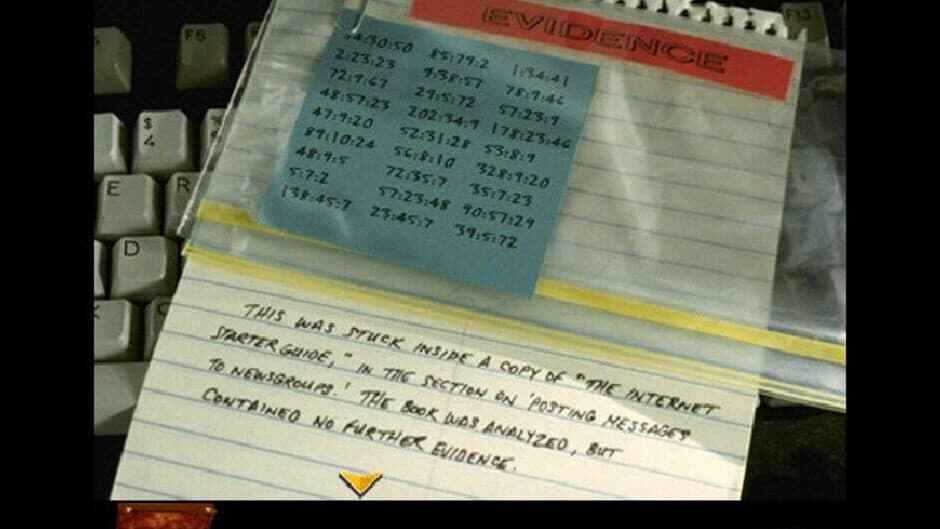 F5
F13
$
4
E
R
D
EVIDENCE
85:79:2 1:34:41
2:23:23 9:38:57 78:9:46
72:9:67 29:5:72 57:23:9
48:57:23 202:34:9 178:23:46
47:9:20 52:31:28 53:8:9
89:10:24 56:8:10 328:9:20
48:9:5 72:35:7 35:7:23
5:7:2 57:23:48 90:57:29
138:45:7 23:45:7 39:5:72
THIS WAS STUCK INSIDE A COPY OF "THE INTERNET
STARTER GUIDE," IN THE SECTION ON 'POSTING MESSAGES
TO NEWSGROUPS.' THE BOOK WAS ANALYZED, BUT
CONTAINED NO FURTHER EVIDENCE.